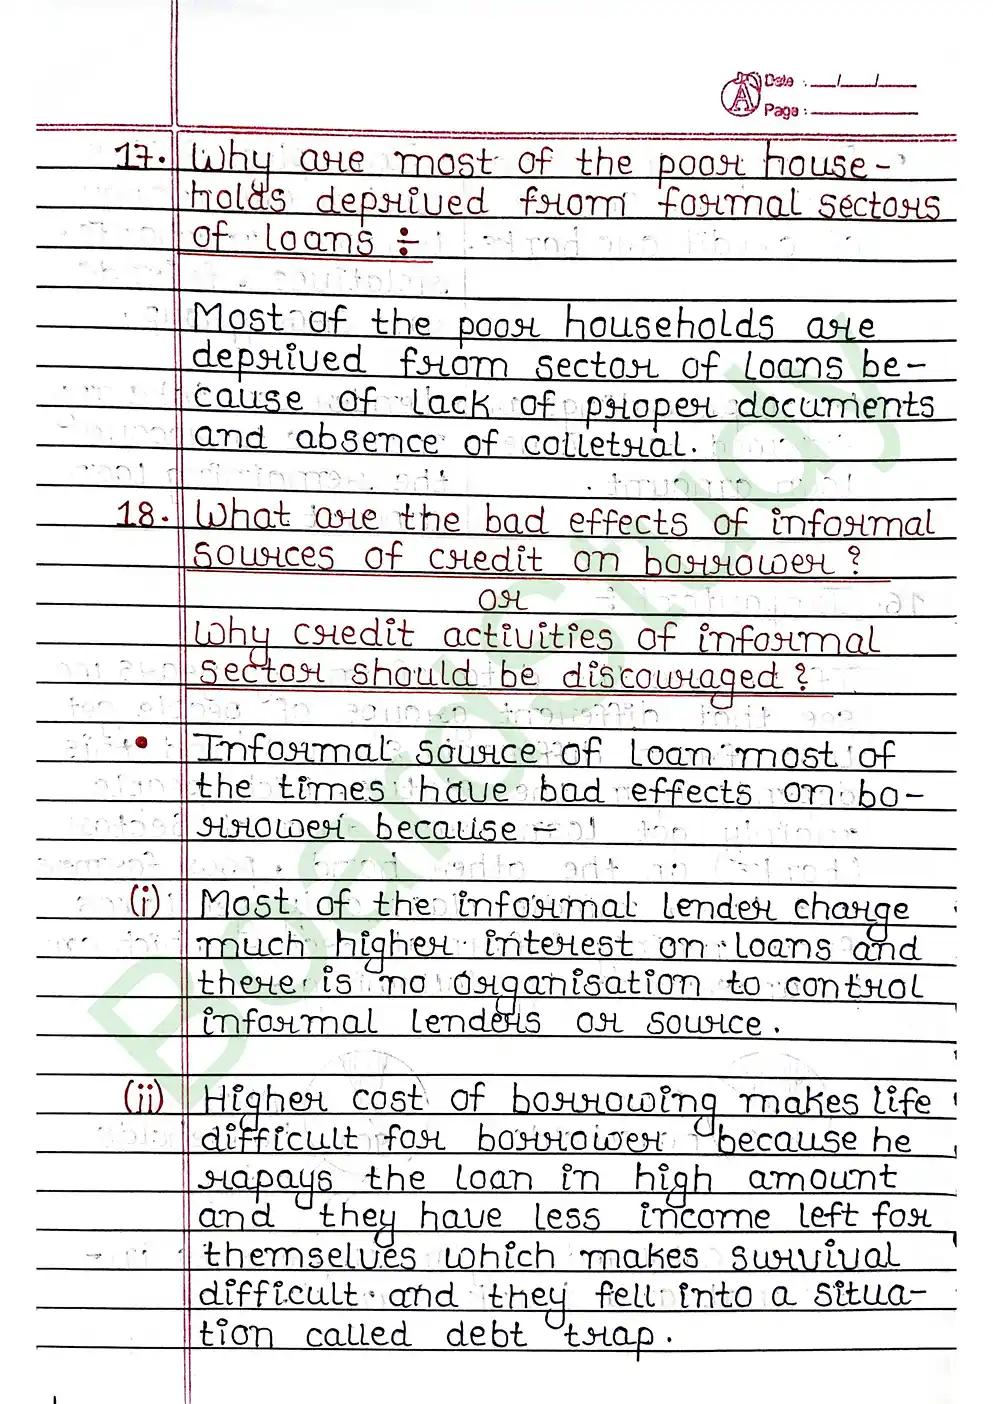 Date : __/__/__
Page : ________
17. Why are most of the poor house-
holds deprived from formal sectors
of loans ÷
Most of the poor households are
deprived from sector of loans be-
cause of lack of proper documents
and absence of colletral.
18. What are the bad effects of informal
sources of credit on borrower ?
or
why credit activities of informal
sector should be discouraged ?
• Informal source of loan most of
the times have bad effects on bo-
rrower because -
(i) Most of the informal lender charge
much higher interest on loans and
there is no organisation to control
informal lenders or source.
(ii) Higher cost of borrowing makes life
difficult for borrower because he
rapays the loan in high amount
and they have less income left for
themselves which makes survival
difficult and they fell into a situa-
tion called debt trap.
Boardstudy